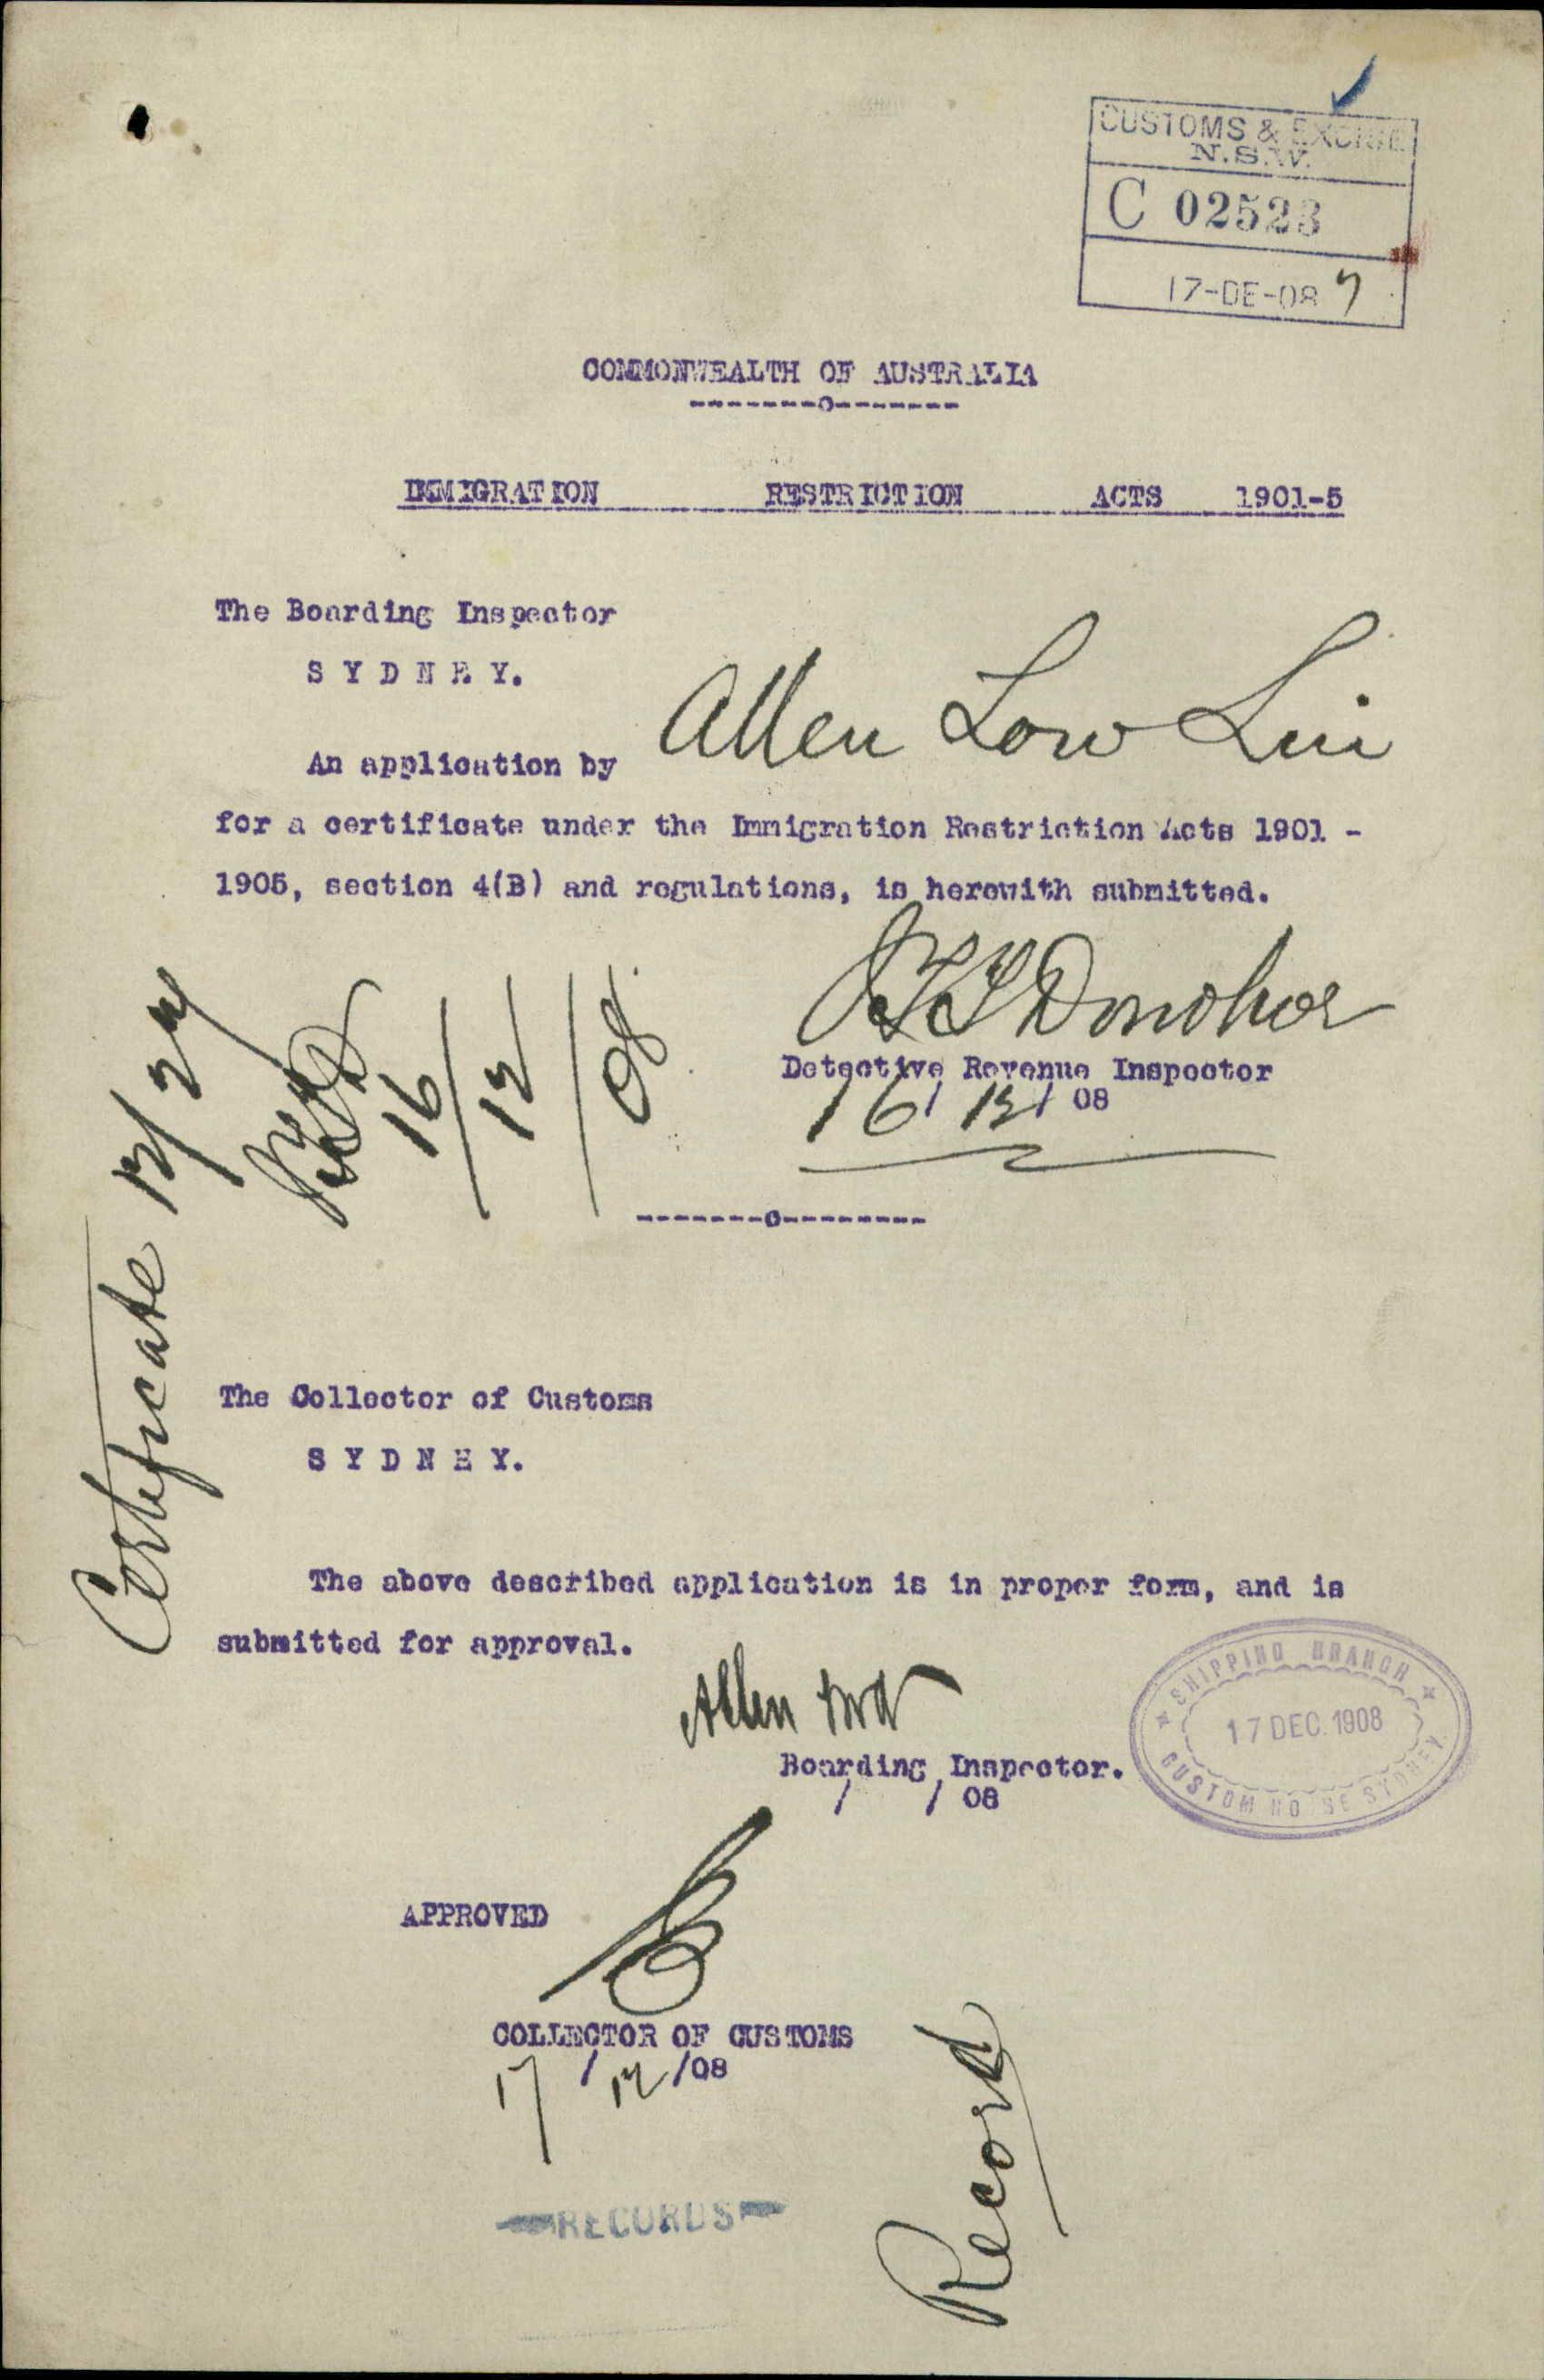 CUSTOMS & EXCISE
N.S.W.
C 02523
17-DE-08 7
COMMONWEALTH OF AUSTRALIA
--------o--------
IMMIGRATION RESTRICTION ACTS 1901-5
The Boarding Inspector
SYDNEY.
Allen Low Lui
An application by
for a certificate under the Immigration Restriction Acts 1901 -
1905, section 4(B) and regulations, is herewith submitted.
Donohoe
Detective Revenue Inspector
16/ 12/ 08
16/12/08
--------o---------
Certificate
The Collector of Customs
SYDNEY.
The above described application is in proper form, and is
submitted for approval.
Allen
Boarding Inspector.
/ / 08
SHIPPING BRANCH
17 DEC. 1908
CUSTOM HOUSE SYDNEY
APPROVED
COLLECTOR OF CUSTOMS
17 / 12 /08
RECORDS
Record